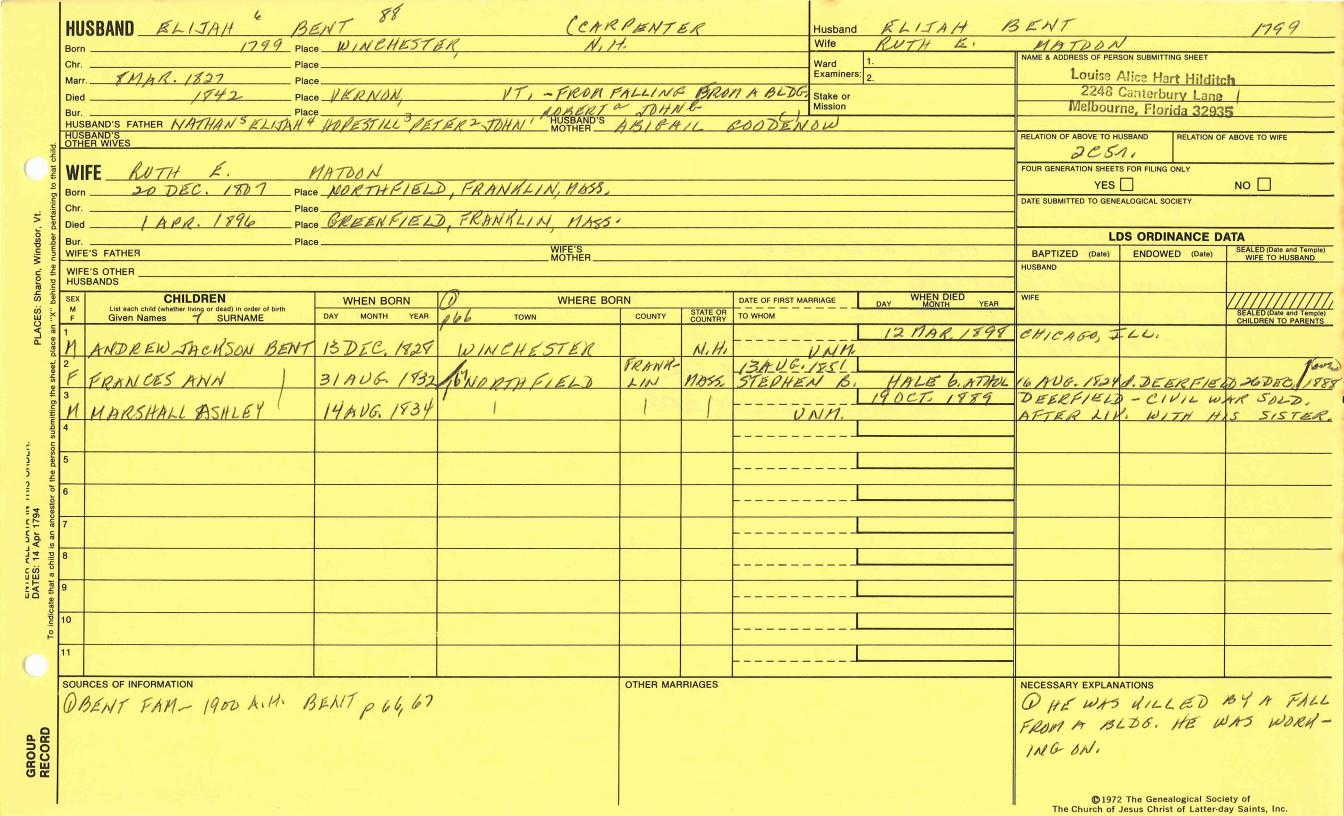 HUSBAND ELIJAH 6 BENT 88 (CARPENTER
Born 1799 Place WINCHESTER, N.H.
Chr. Place
Marr. 8 MAR. 1827 Place
Died 1842 Place VERNON, VT, - FROM FALLING FROM A BLDG.
Bur. Place ROBERT a JOHN b
HUSBAND'S FATHER NATHAN 5 ELIJAH 4 HOPESTILL 3 PETER 2 JOHN 1 HUSBAND'S MOTHER ABIGAIL GOODENOW
HUSBAND'S OTHER WIVES
Husband ELIJAH BENT 1799
Wife RUTH E. MATOON
Ward Examiners: 1. 2.
Stake or Mission
NAME & ADDRESS OF PERSON SUBMITTING SHEET
Louise Alice Hart Hilditch
2248 Canterbury Lane
Melbourne, Florida 32935
RELATION OF ABOVE TO HUSBAND RELATION OF ABOVE TO WIFE
2C5r.
FOUR GENERATION SHEETS FOR FILING ONLY
YES NO
DATE SUBMITTED TO GENEALOGICAL SOCIETY
WIFE RUTH E. MATOON
Born 20 DEC. 1807 Place NORTHFIELD, FRANKLIN, MASS.
Chr. Place
Died 1 APR. 1896 Place GREENFIELD, FRANKLIN, MASS.
Bur. Place
WIFE'S FATHER WIFE'S MOTHER
WIFE'S OTHER HUSBANDS
LDS ORDINANCE DATA
BAPTIZED (Date) ENDOWED (Date) SEALED (Date and Temple) WIFE TO HUSBAND
HUSBAND
WIFE
SEALED (Date and Temple) CHILDREN TO PARENTS
SEX M F
CHILDREN
List each child (whether living or dead) in order of birth
Given Names 7 SURNAME
WHEN BORN
DAY MONTH YEAR
① p66
WHERE BORN
TOWN COUNTY STATE OR COUNTRY
DATE OF FIRST MARRIAGE
TO WHOM
WHEN DIED
DAY MONTH YEAR
1 M ANDREW JACKSON BENT 13 DEC. 1828 WINCHESTER N.H. UNM. 12 MAR. 1898 CHICAGO, ILL.
2 F FRANCES ANN 31 AUG. 1832 p67 NORTHFIELD FRANK-LIN MASS. 13 AUG. 1851 STEPHEN B. HALE b. ATHOL 16 AUG. 1824 d. DEERFIELD 26 DEC. 1888
3 M MARSHALL ASHLEY 14 AUG. 1834 UNM. 19 OCT. 1889 DEERFIELD - CIVIL WAR SOLD.
AFTER LIV. WITH HIS SISTER.
4
5
6
7
8
9
10
11
SOURCES OF INFORMATION
① BENT FAM - 1900 A.H. BENT p 66, 67
OTHER MARRIAGES
NECESSARY EXPLANATIONS
① HE WAS KILLED BY A FALL
FROM A BLDG. HE WAS WORK-
ING ON.
©1972 The Genealogical Society of
The Church of Jesus Christ of Latter-day Saints, Inc.
PLACES: Sharon, Windsor, Vt.
ENTER ALL DATA IN THIS ORDER:
DATES: 14 Apr 1794
To indicate that a child is an ancestor of the person submitting the sheet, place an "X" behind the number pertaining to that child.
GROUP RECORD